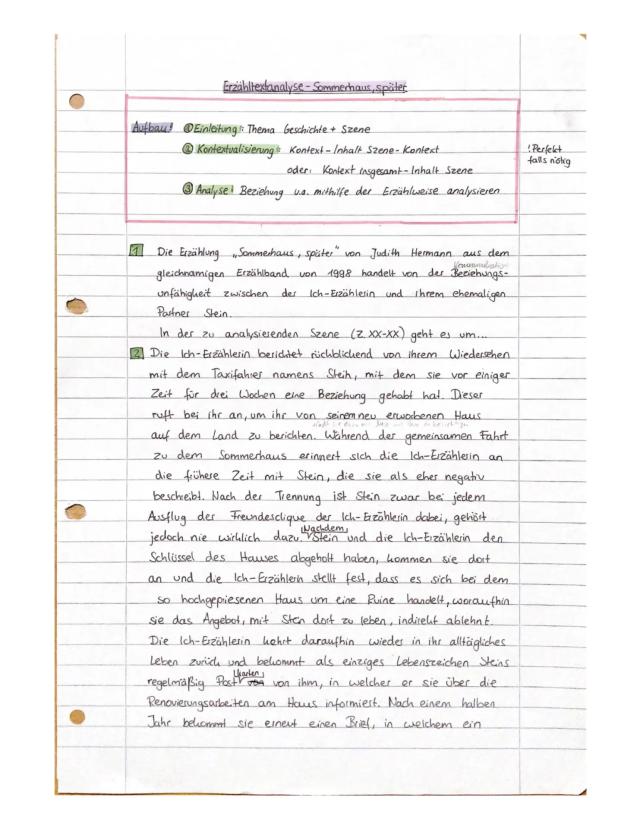 Erzähltextanalyse - Sommerhaus, später
Aufbau: ① Einleitung: Thema Geschichte + Szene
② Kontextualisierung: Kontext - Inhalt Szene - Kontext
oder: Kontext insgesamt - Inhalt Szene
③ Analyse: Beziehung u.a. mithilfe der Erzählweise analysieren
! Perfekt
falls nötig
1 Die Erzählung „Sommerhaus, später" von Judith Hermann aus dem
gleichnamigen Erzählband von 1998 handelt von der Beziehungs-
unfähigkeit zwischen der Ich-Erzählerin und ihrem ehemaligen
Partner Stein.
In der zu analysierenden Szene (Z. XX-XX) geht es um...
2 Die Ich-Erzählerin berichtet rückblickend von ihrem Wiedersehen
mit dem Taxifahrer namens Stein, mit dem sie vor einiger
Zeit für drei Wochen eine Beziehung gehabt hat. Dieser
ruft bei ihr an, um ihr von seinem neu erworbenen Haus
auf dem Land zu berichten. Während der gemeinsamen Fahrt
zu dem Sommerhaus erinnert sich die Ich-Erzählerin an
die frühere Zeit mit Stein, die sie als eher negativ
beschreibt. Nach der Trennung ist Stein zwar bei jedem
Ausflug der Freundesclique der Ich-Erzählerin dabei, gehört
jedoch nie wirklich dazu. Nachdem Stein und die Ich-Erzählerin den
Schlüssel des Hauses abgeholt haben, kommen sie dort
an und die Ich-Erzählerin stellt fest, dass es sich bei dem
so hochgepriesenen Haus um eine Ruine handelt, woraufhin
sie das Angebot, mit Stein dort zu leben, indirekt ablehnt.
Die Ich-Erzählerin kehrt daraufhin wieder in ihr alltägliches
Leben zurück und bekommt als einziges Lebenszeichen Steins
regelmäßig Postkarten von ihm, in welcher er sie über die
Renovierungsarbeiten am Haus informiert. Nach einem halben
Jahr bekommt sie erneut einen Brief, in welchem ein